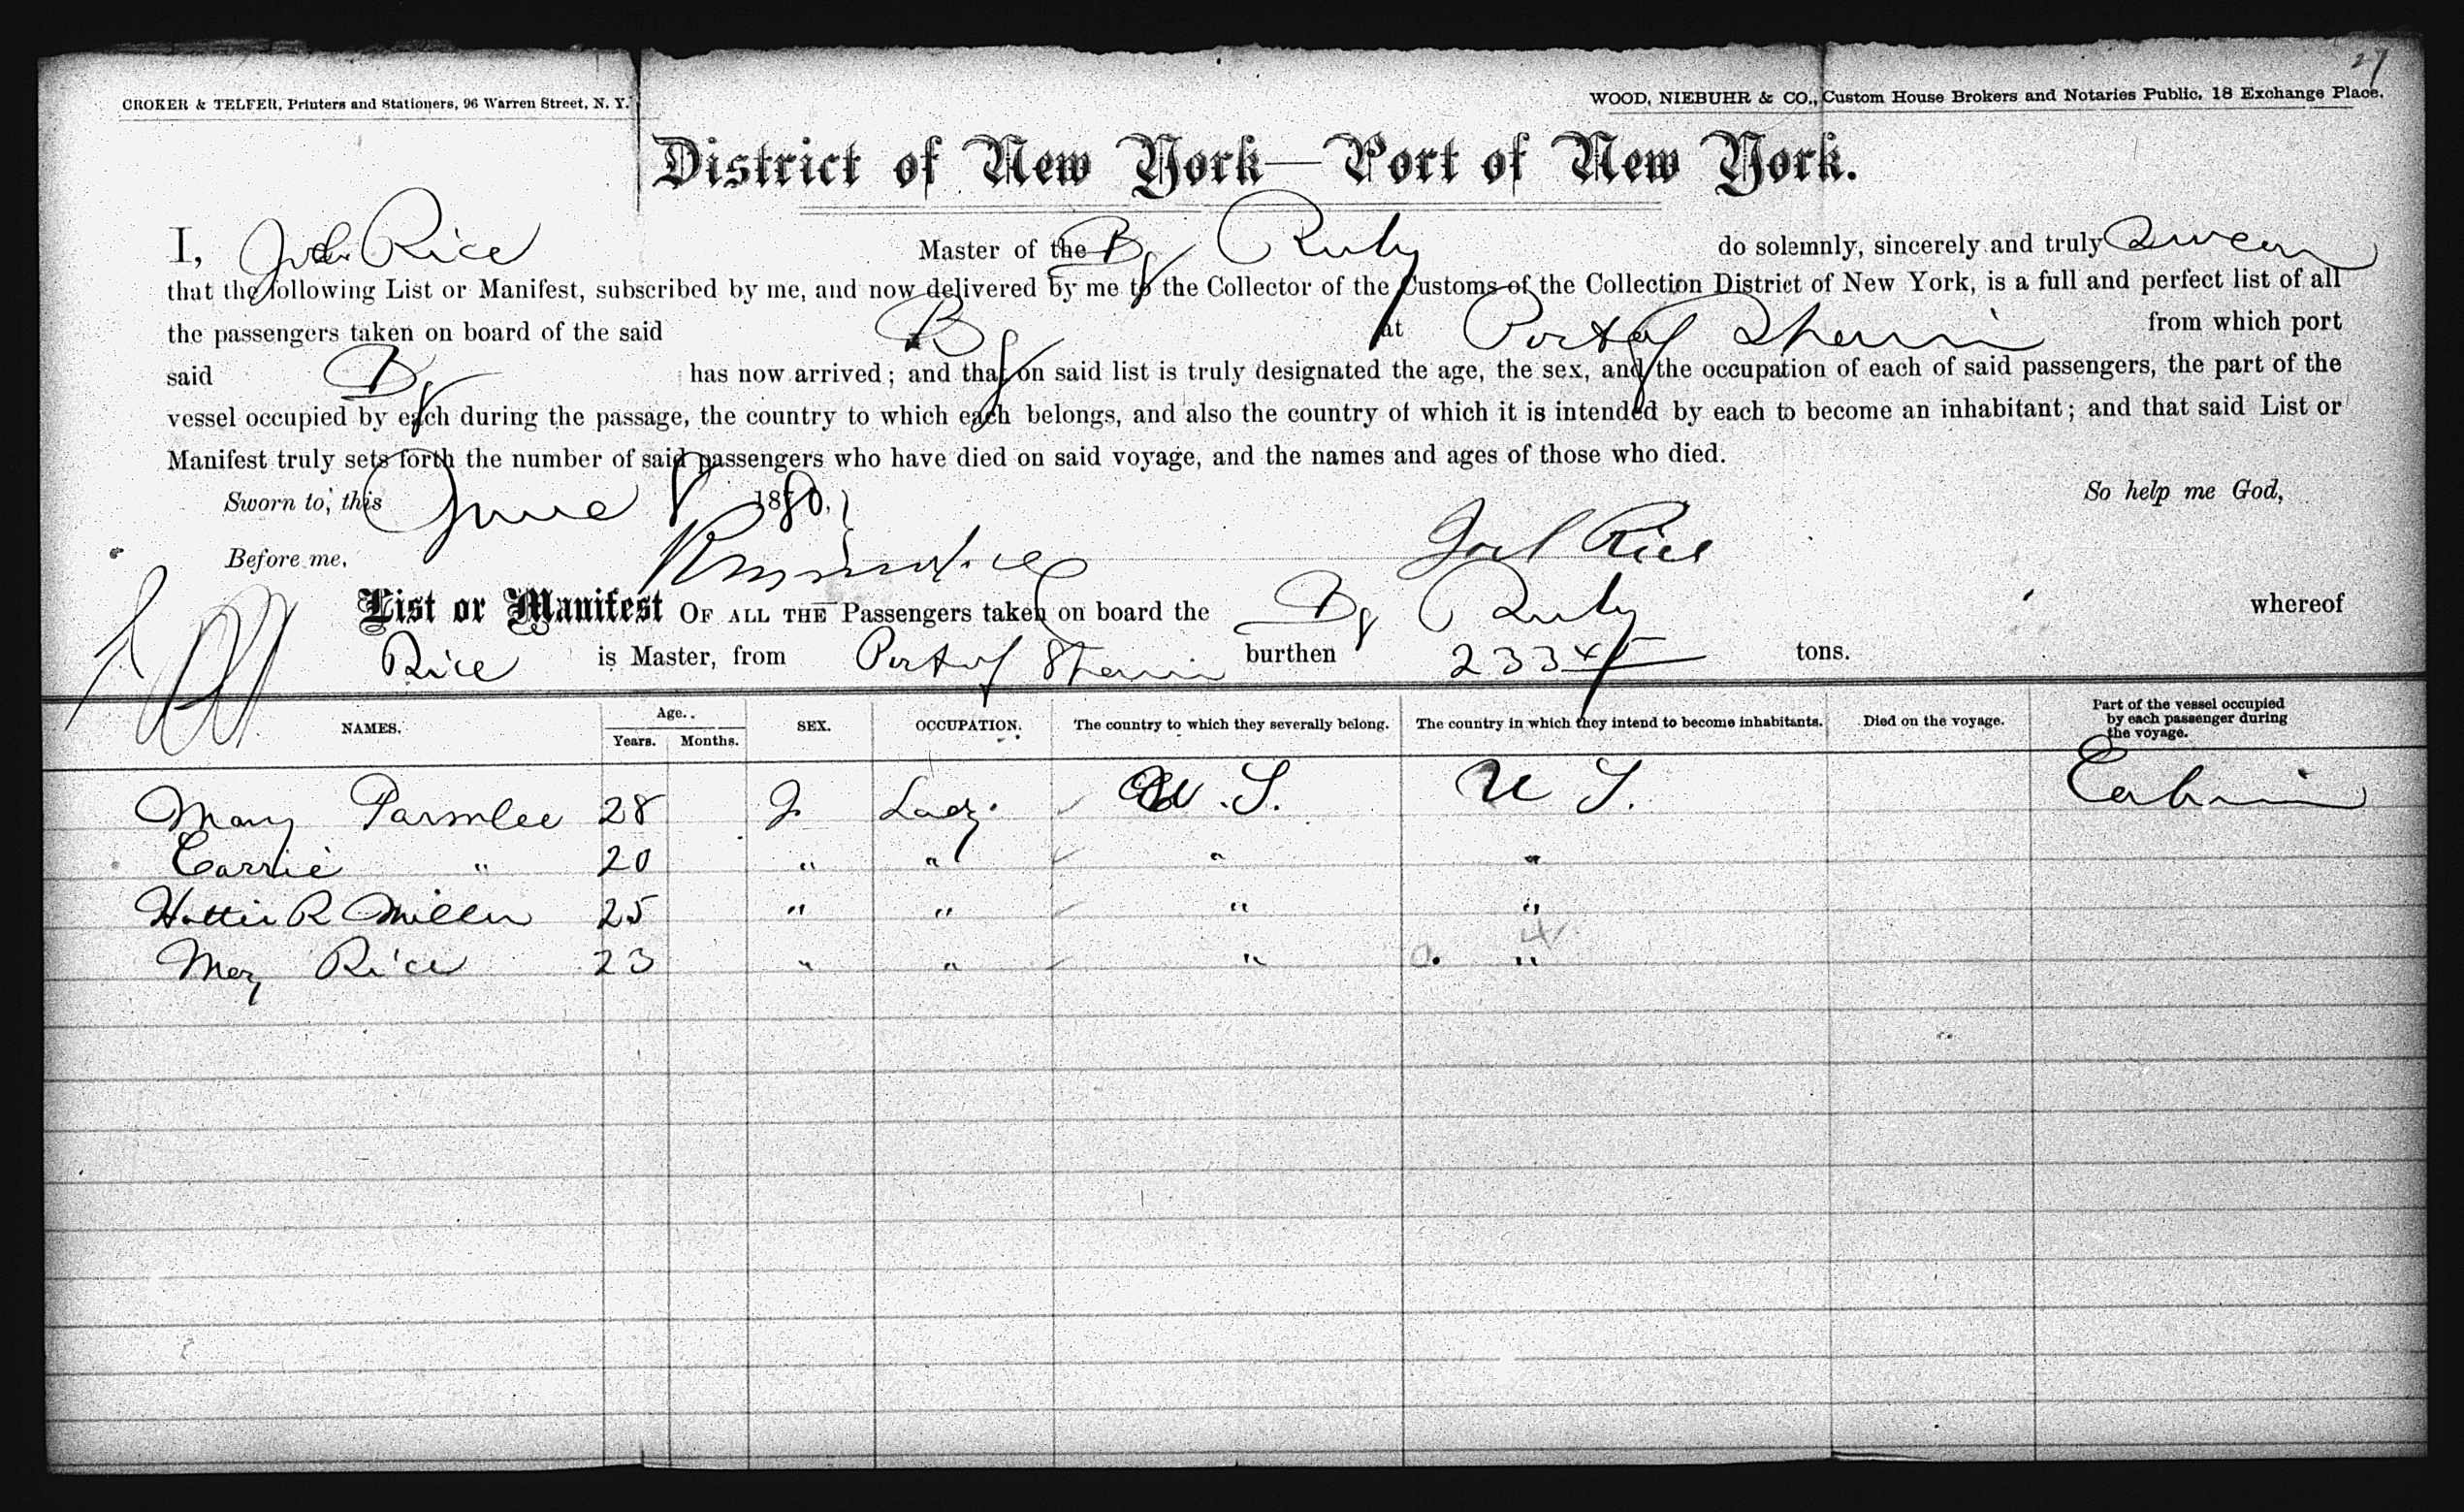 27
CROKER & TELFER, Printers and Stationers, 96 Warren Street, N. Y.
WOOD, NIEBUHR & CO., Custom House Brokers and Notaries Public, 18 Exchange Place.
District of New York—Port of New York.
I, Joel Rice Master of the Bg Ruby do solemnly, sincerely and truly swear
that the following List or Manifest, subscribed by me, and now delivered by me to the Collector of the Customs of the Collection District of New York, is a full and perfect list of all
the passengers taken on board of the said Bg at Port of Spain from which port
said Bg has now arrived; and that on said list is truly designated the age, the sex, and the occupation of each of said passengers, the part of the
vessel occupied by each during the passage, the country to which each belongs, and also the country of which it is intended by each to become an inhabitant; and that said List or
Manifest truly sets forth the number of said passengers who have died on said voyage, and the names and ages of those who died.
Sworn to, this June 8 1880. So help me God,
Before me, Joel Rice
List or Manifest OF ALL THE Passengers taken on board the Bg Ruby whereof
Rice is Master, from Port of Spain burthen 233 tons.
NAMES. Age. Years. Months. SEX. OCCUPATION. The country to which they severally belong. The country in which they intend to become inhabitants. Died on the voyage. Part of the vessel occupied by each passenger during the voyage.
Mary Parmlee 28 F Lady U.S. U S. Cabin
Carrie " 20 " " " "
Hattie R Miller 25 " " " "
May Rice 23 " " " "